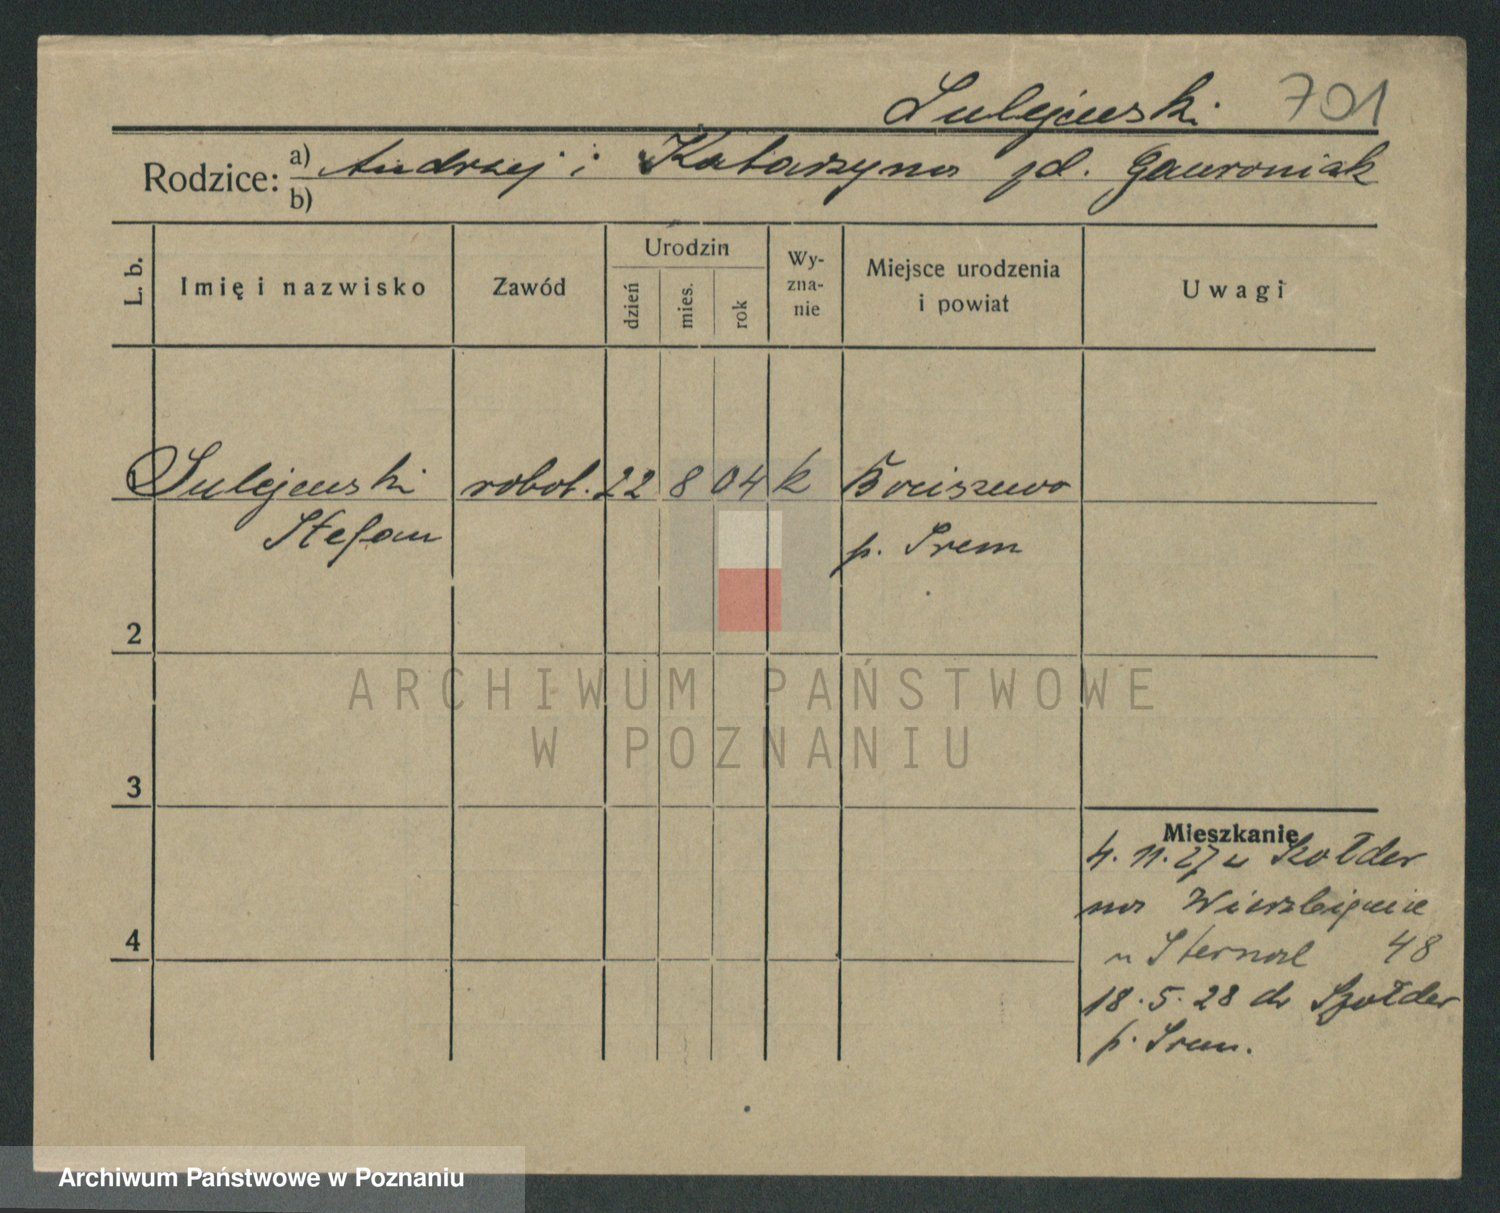 Lulejewski 701
Rodzice: a) Andrzej i Katarzyna zd. Gawroniak
b)
L. b. Imię i nazwisko Zawód Urodzin Wyznanie Miejsce urodzenia i powiat Uwagi
dzień mies. rok
1 Lulejewski robot. 22 8 04 k Bociszewo
Stefan p. Śrem
2
3
4
Mieszkanie
4. 11. 27 z
na Wierzbięcice
u Sternal 48
18. 5. 28 do Szołder
p. Śrem.
ARCHIWUM PAŃSTWOWE
W POZNANIU
Archiwum Państwowe w Poznaniu